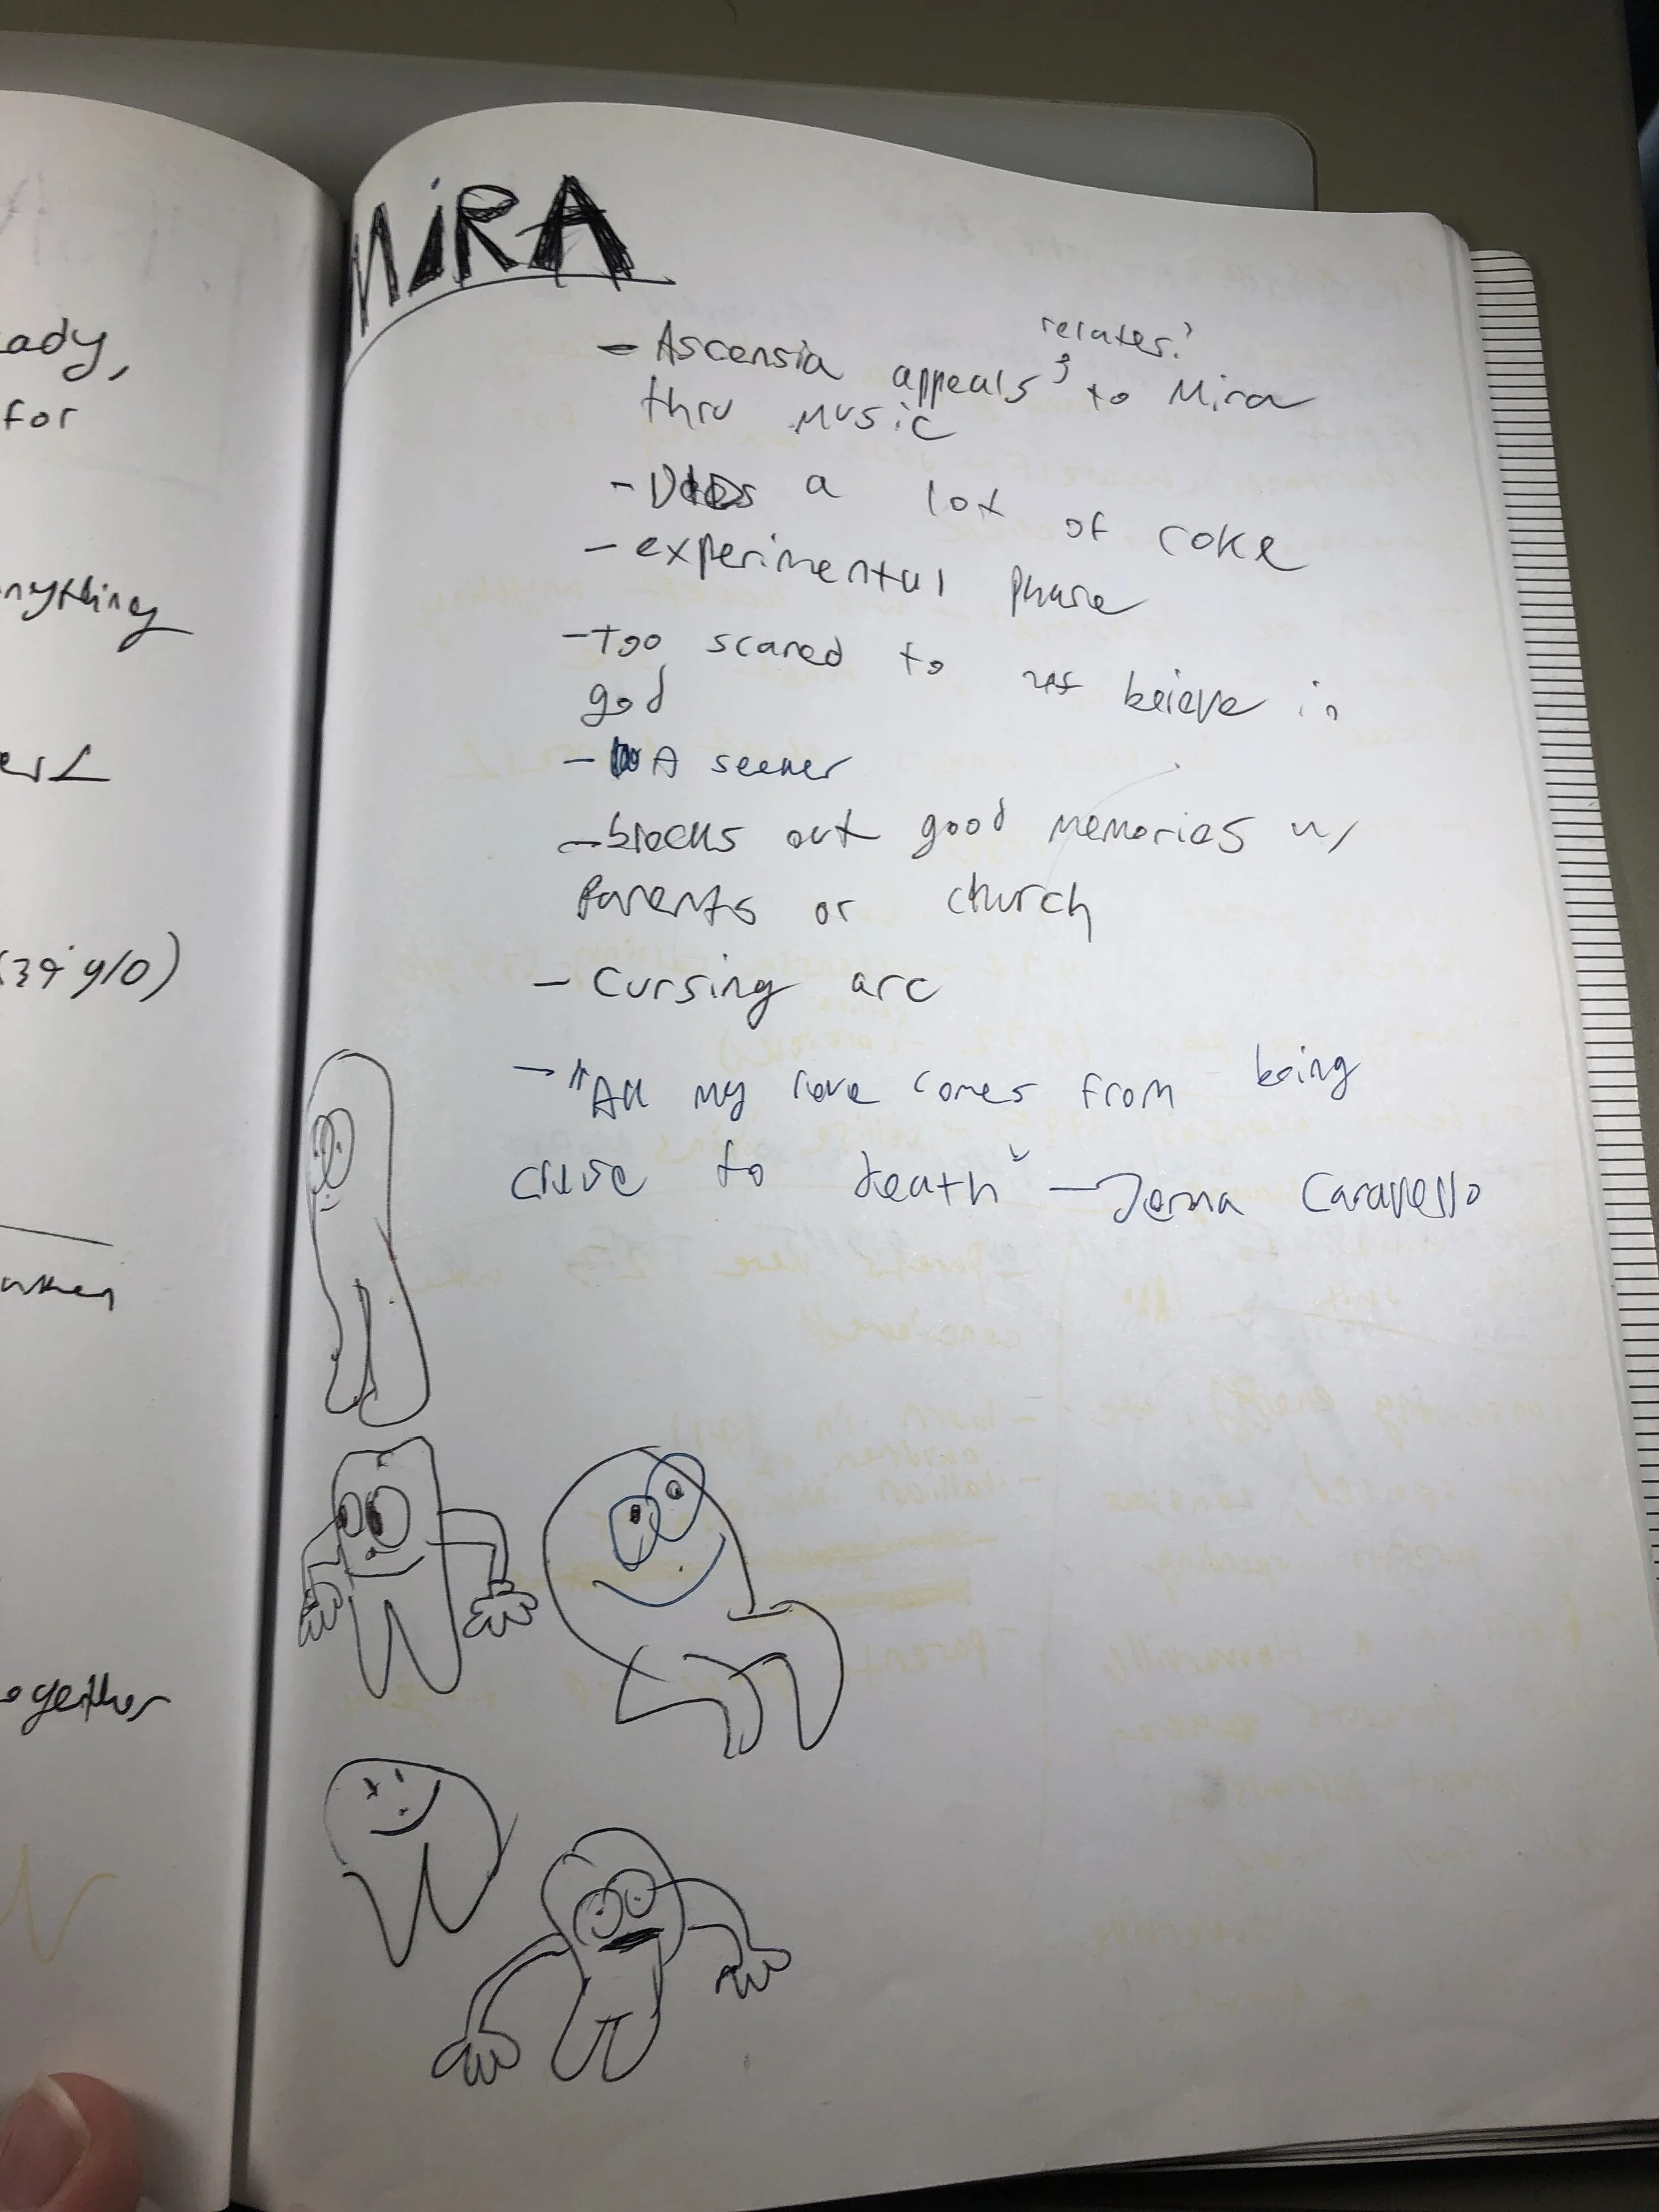 ady,
for
nything
(39 y/o)
ogether
MiRA
relates?
- Ascensia appeals to Mira
thru music
- Does a lot of coke
- experimental phase
- Too scared to not believe in
god
- A seeker
- blocks out good memories w/
parents or church
- Cursing arc
- "All my love comes from being
close to death" - Jenna Caravello